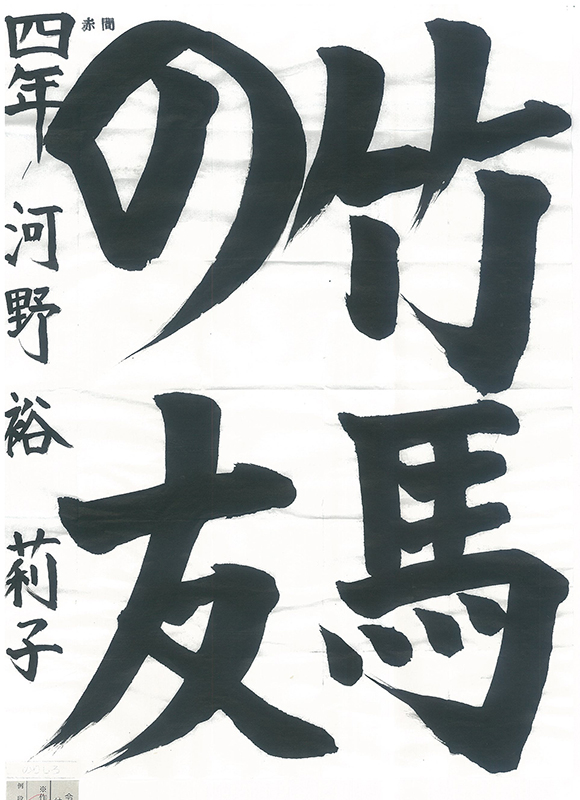 竹馬
の友
赤間
四年 河野 裕莉子